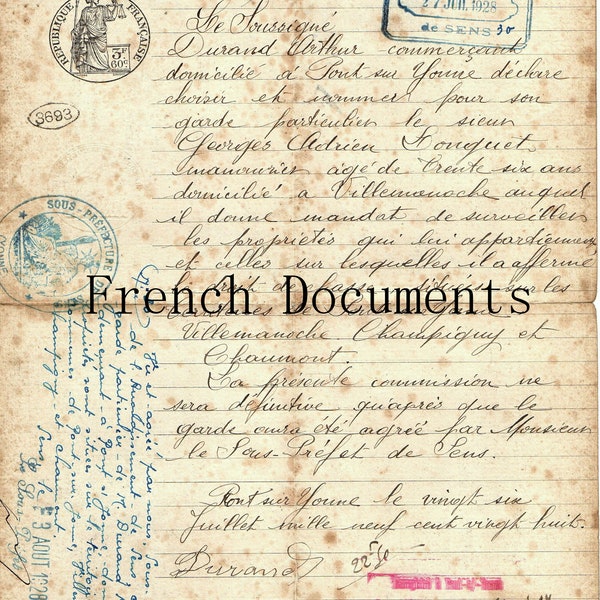 RÉPUBLIQUE FRANÇAISE
3F
60c
27 JUIL 1928
de SENS
3693
SOUS-PRÉFECTURE
Le Soussigné
Durand Arthur commerçant
domicilié à Pont sur Yonne déclare
choisir et nommer pour son
garde particulier le sieur
Georges Adrien Fouquet
manouvrier âgé de trente six ans
domicilié à Villemanoche auquel
il donne mandat de surveiller
les propriétés qui lui appartiennent
et celles sur lesquelles il a affermé
le droit de chasse sur les
French Documents
Villemanoche Champigny et
Chaumont.
La présente commission ne
sera définitive qu'après que le
garde aura été agréé par Monsieur
le Sous-Préfet de Sens.
Pont sur Yonne le vingt six
Juillet mille neuf cent vingt huit.
Durand
Vu et agréé par nous, Sous-
de l'arrondissement de Sens,
garde particulier de M. Durand
Pont s/ Yonne,
sont situées sur le
communes de Pont sur Yonne,
Champigny et Chaumont
Sens, le 3 AOUT 1928
Le Sous-Préfet